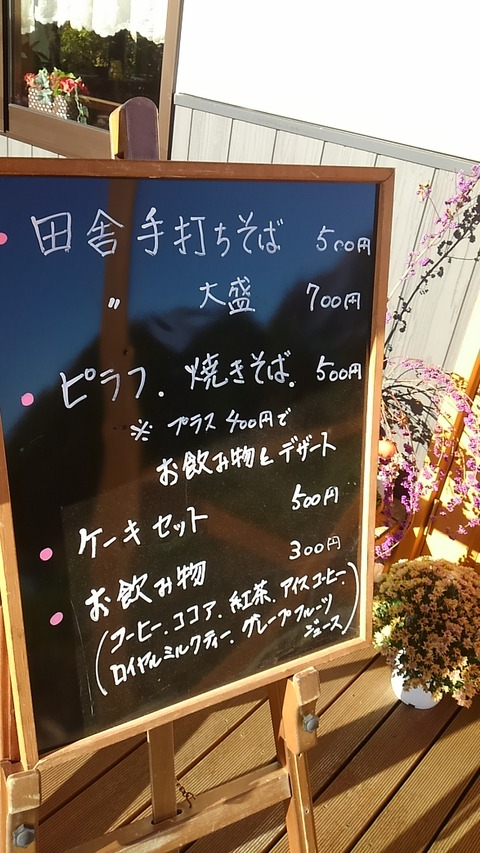 田舎手打ちそば 500円
〃 大盛 700円
ピラフ. 焼きそば. 500円
※ プラス400円で
お飲み物とデザート
ケーキセット 500円
お飲み物 300円
(コーヒー. ココア、紅茶、アイスコーヒー.
ロイヤルミルクティー. グレープフルーツ
ジュース)